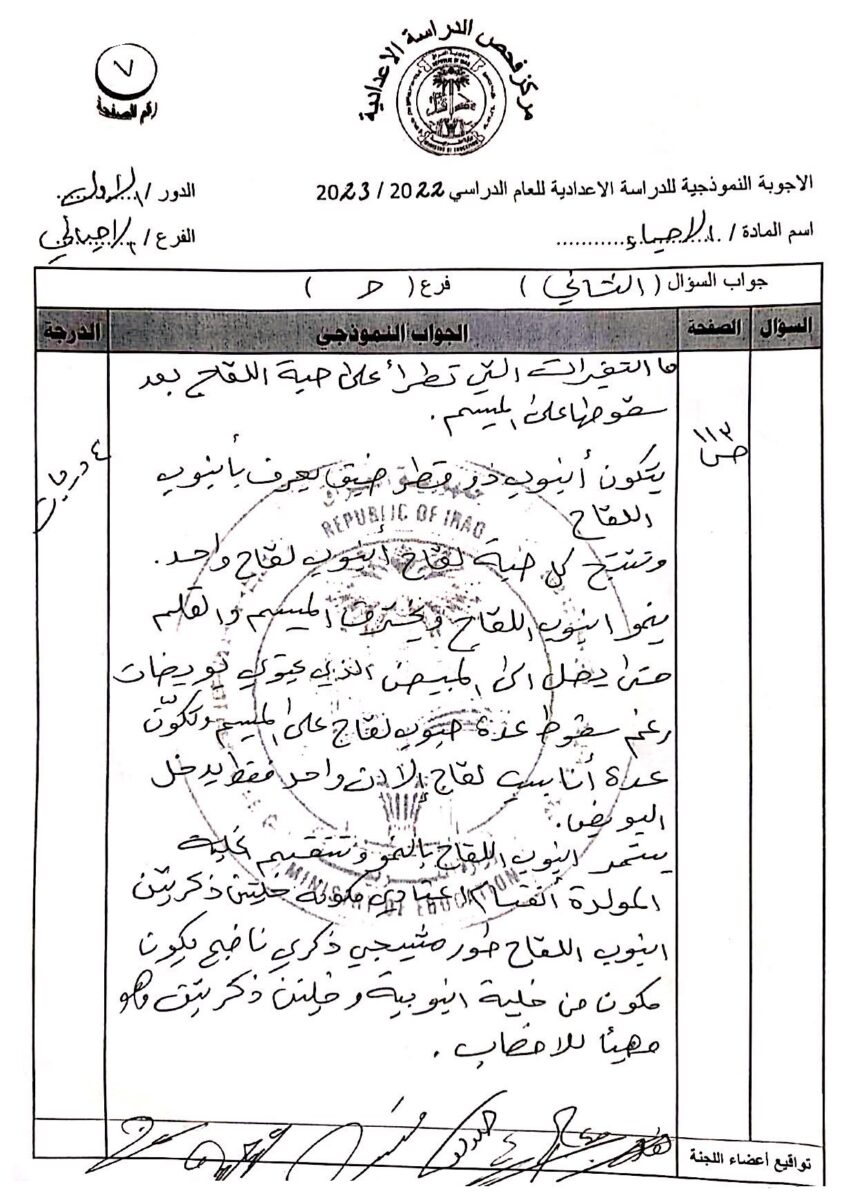 مركز فحص الدراسة الاعدادية
٧
رقم الصفحة
الاجوبة النموذجية للدراسة الاعدادية للعام الدراسي 2022 / 2023
الدور / الاول
اسم المادة / الاحياء
الفرع / الاحيائي
جواب السؤال ( الثاني ) فرع ( )
السؤال الصفحة الجواب النموذجي الدرجة
ما التغيرات التي تطرأ على حبة اللقاح بعد
سقوطها على الميسم .
ص ١١٣
٤ درجات
يتكون أنبوب ذو قطر ضيق يعرف بأنبوب
اللقاح
وتنتج كل حبة لقاح أنبوب لقاح واحد .
ينمو انبوب اللقاح ويخترق الميسم والقلم
حتى يدخل الى المبيض الذي يحتوي بويضات
رغم سقوط عدة حبوب لقاح على الميسم وتكوّن
عدة أنابيب لقاح إلا ان واحد فقط يدخل
البويض .
يستمر انبوب اللقاح بالنمو وتنقسم الخلية
المولدة انقسام اعتيادي مكونة خليتين ذكريتين
انبوب اللقاح طور مشيجي ذكري ناضج يكون
مكون من خلية انبوبية وخليتين ذكريتين وهو
مهيأ للاخصاب .
REPUBLIC OF IRAQ
MINISTRY OF EDUCATION
تواقيع أعضاء اللجنة